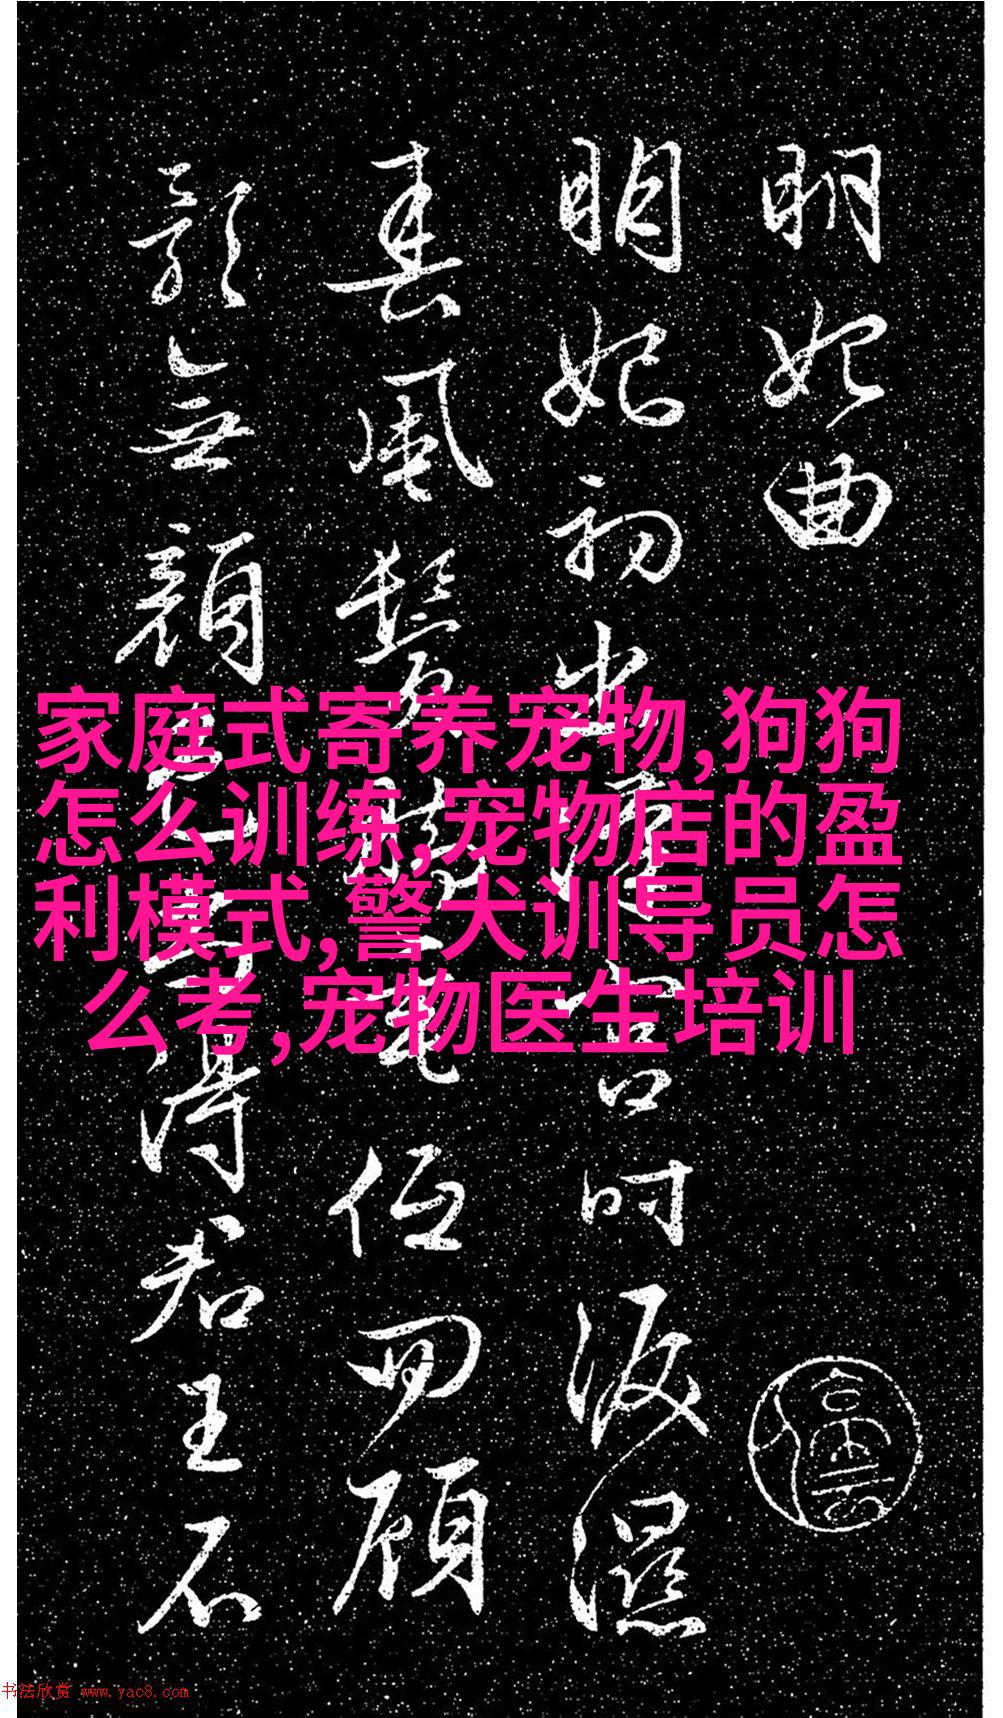 明妃曲
明妃初出漢宮時淚濕
春風鬢腳垂低回顧
影無顏色尚得君王不
家庭式寄养宠物,狗狗
怎么训练,宠物店的盈
利模式,警犬训导员怎
么考,宠物医生培训
书法欣赏 www.yac8.com